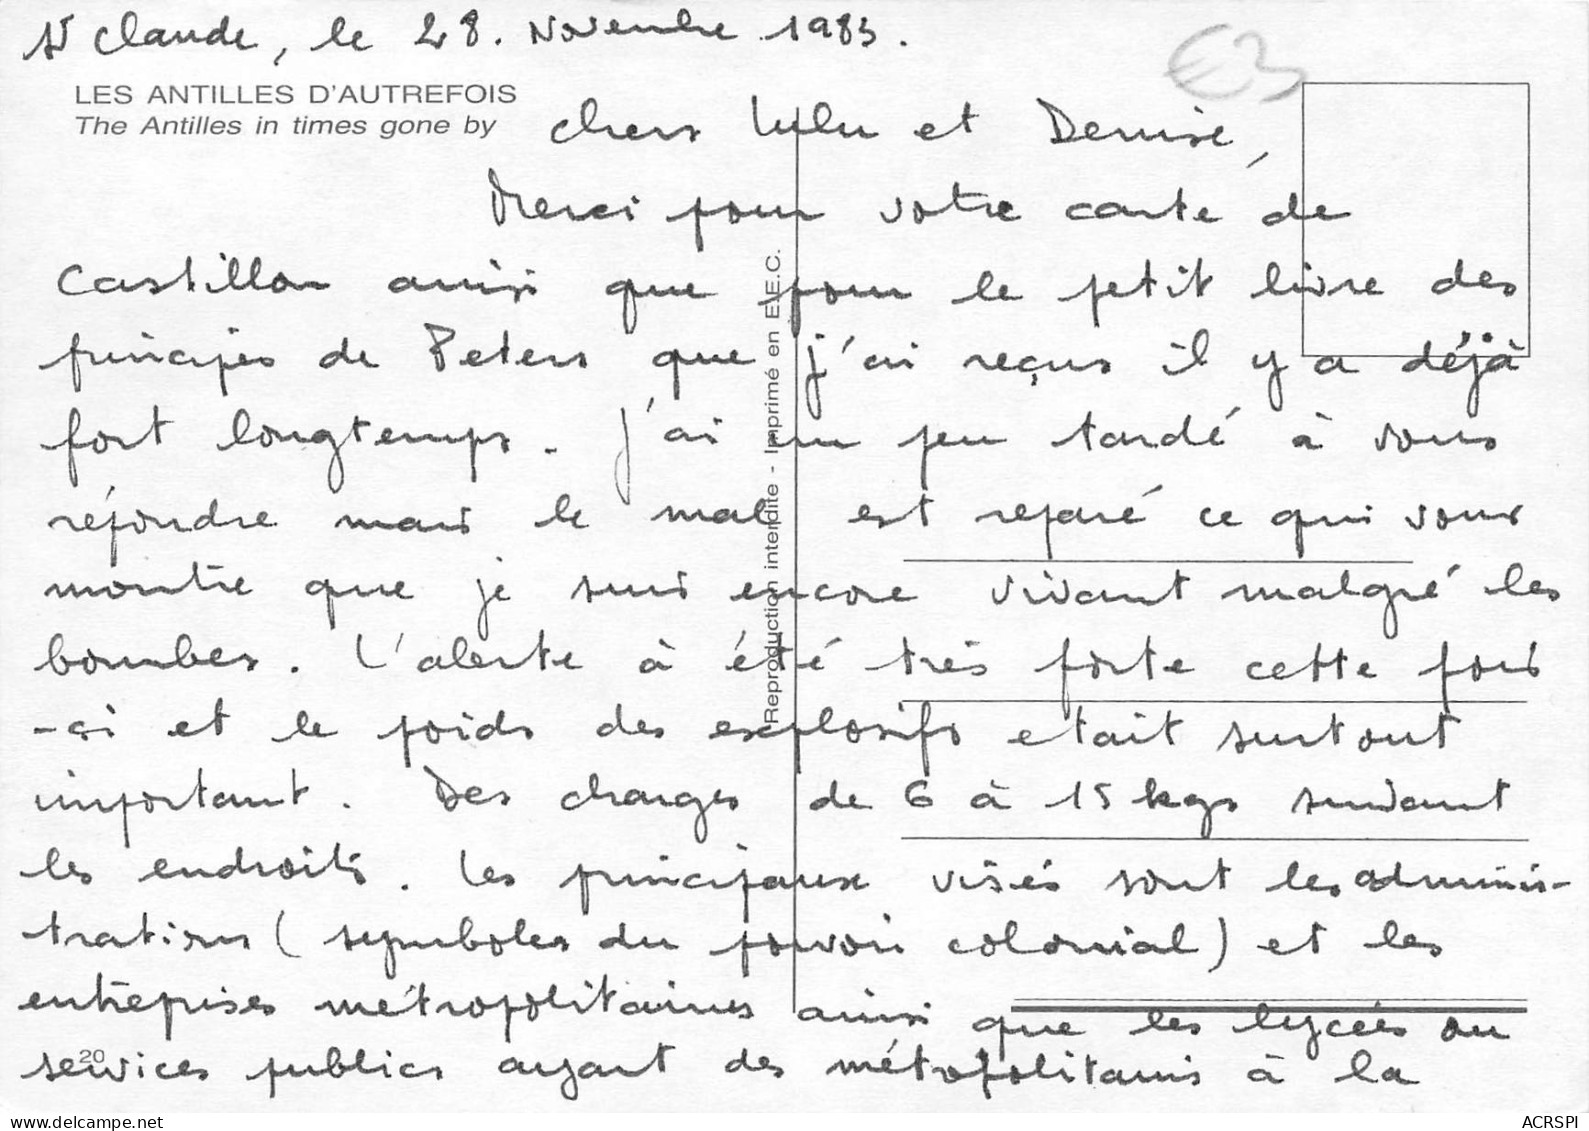 St Claude, le 28. Novembre 1983.
€3
LES ANTILLES D'AUTREFOIS
The Antilles in times gone by
Chers Lulu et Denise,
Merci pour votre carte de
Castillon ainsi que pour le petit livre des
principes de Peters que j'ai reçus il y a déjà
fort longtemps. J'ai un peu tardé à vous
répondre mais le mal est reparé ce qui vous
montre que je suis encore vivant malgré les
bombes. L'alerte à été très forte cette fois
-ci et le poids des explosifs etait surtout
important. Des charges de 6 à 15 kgs suivant
les endroits. Les principaux visés sont les adminis-
trations (symboles du pouvoir colonial) et les
entreprises métropolitaines ainsi que les lycées ou
services publics ayant des métropolitains à la
20
Reproduction interdite - Imprimé en E.E.C.
ACRSPI